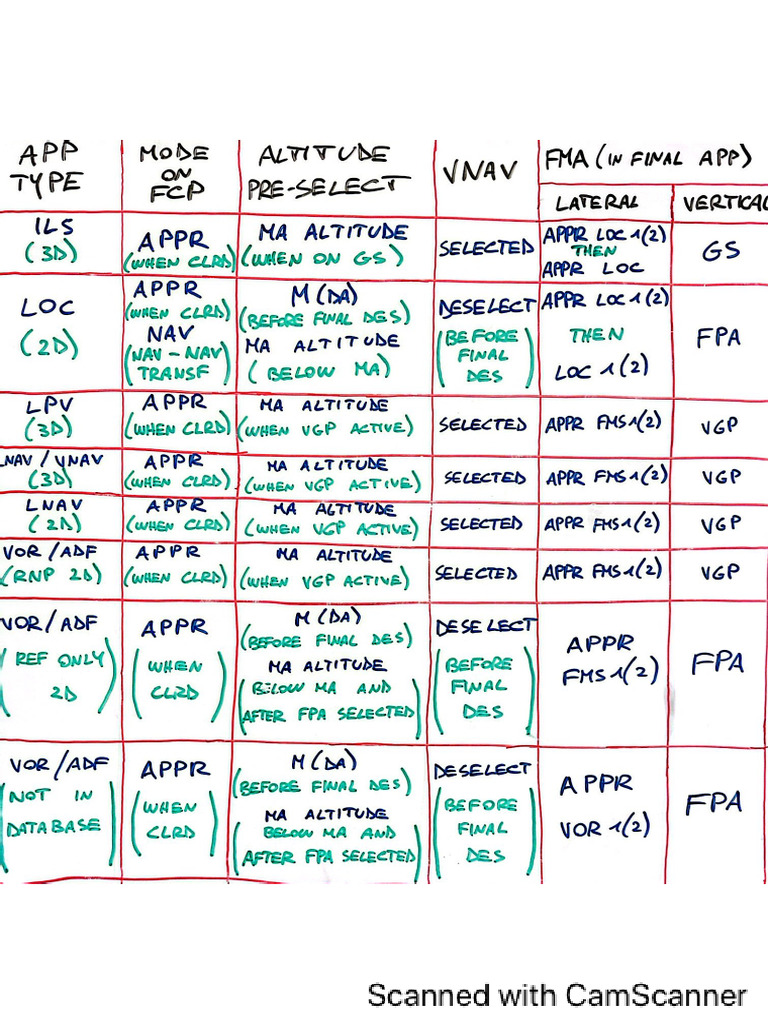 APP TYPE
MODE ON FCP
ALTITUDE PRE-SELECT
VNAV
FMA (IN FINAL APP)
LATERAL
VERTICAL
ILS
(3D)
APPR
(WHEN CLRD)
MA ALTITUDE
(WHEN ON GS)
SELECTED
APPR LOC 1(2)
THEN
APPR LOC
GS
LOC
(2D)
APPR
(WHEN CLRD)
NAV
(NAV-NAV
TRANSF)
M(DA)
(BEFORE FINAL DES)
MA ALTITUDE
(BELOW MA)
DESELECT
(BEFORE
FINAL
DES)
APPR LOC 1(2)
THEN
LOC 1(2)
FPA
LPV
(3D)
APPR
(WHEN CLRD)
MA ALTITUDE
(WHEN VGP ACTIVE)
SELECTED
APPR FMS1(2)
VGP
LNAV / VNAV
(3D)
APPR
(WHEN CLRD)
MA ALTITUDE
(WHEN VGP ACTIVE)
SELECTED
APPR FMS1(2)
VGP
LNAV
(2D)
APPR
(WHEN CLRD)
MA ALTITUDE
(WHEN VGP ACTIVE)
SELECTED
APPR FMS1(2)
VGP
VOR / ADF
(RNP 2D)
APPR
(WHEN CLRD)
MA ALTITUDE
(WHEN VGP ACTIVE)
SELECTED
APPR FMS1(2)
VGP
VOR/ADF
(REF ONLY
2D)
APPR
(WHEN
CLRD)
M(DA)
(BEFORE FINAL DES)
MA ALTITUDE
(BELOW MA AND
AFTER FPA SELECTED)
DESELECT
(BEFORE
FINAL
DES)
APPR
FMS1(2)
FPA
VOR/ADF
(NOT IN
DATABASE)
APPR
(WHEN
CLRD)
M(DA)
(BEFORE FINAL DES)
MA ALTITUDE
(BELOW MA AND
AFTER FPA SELECTED)
DESELECT
(BEFORE
FINAL
DES)
APPR
VOR 1(2)
FPA
Scanned with CamScanner